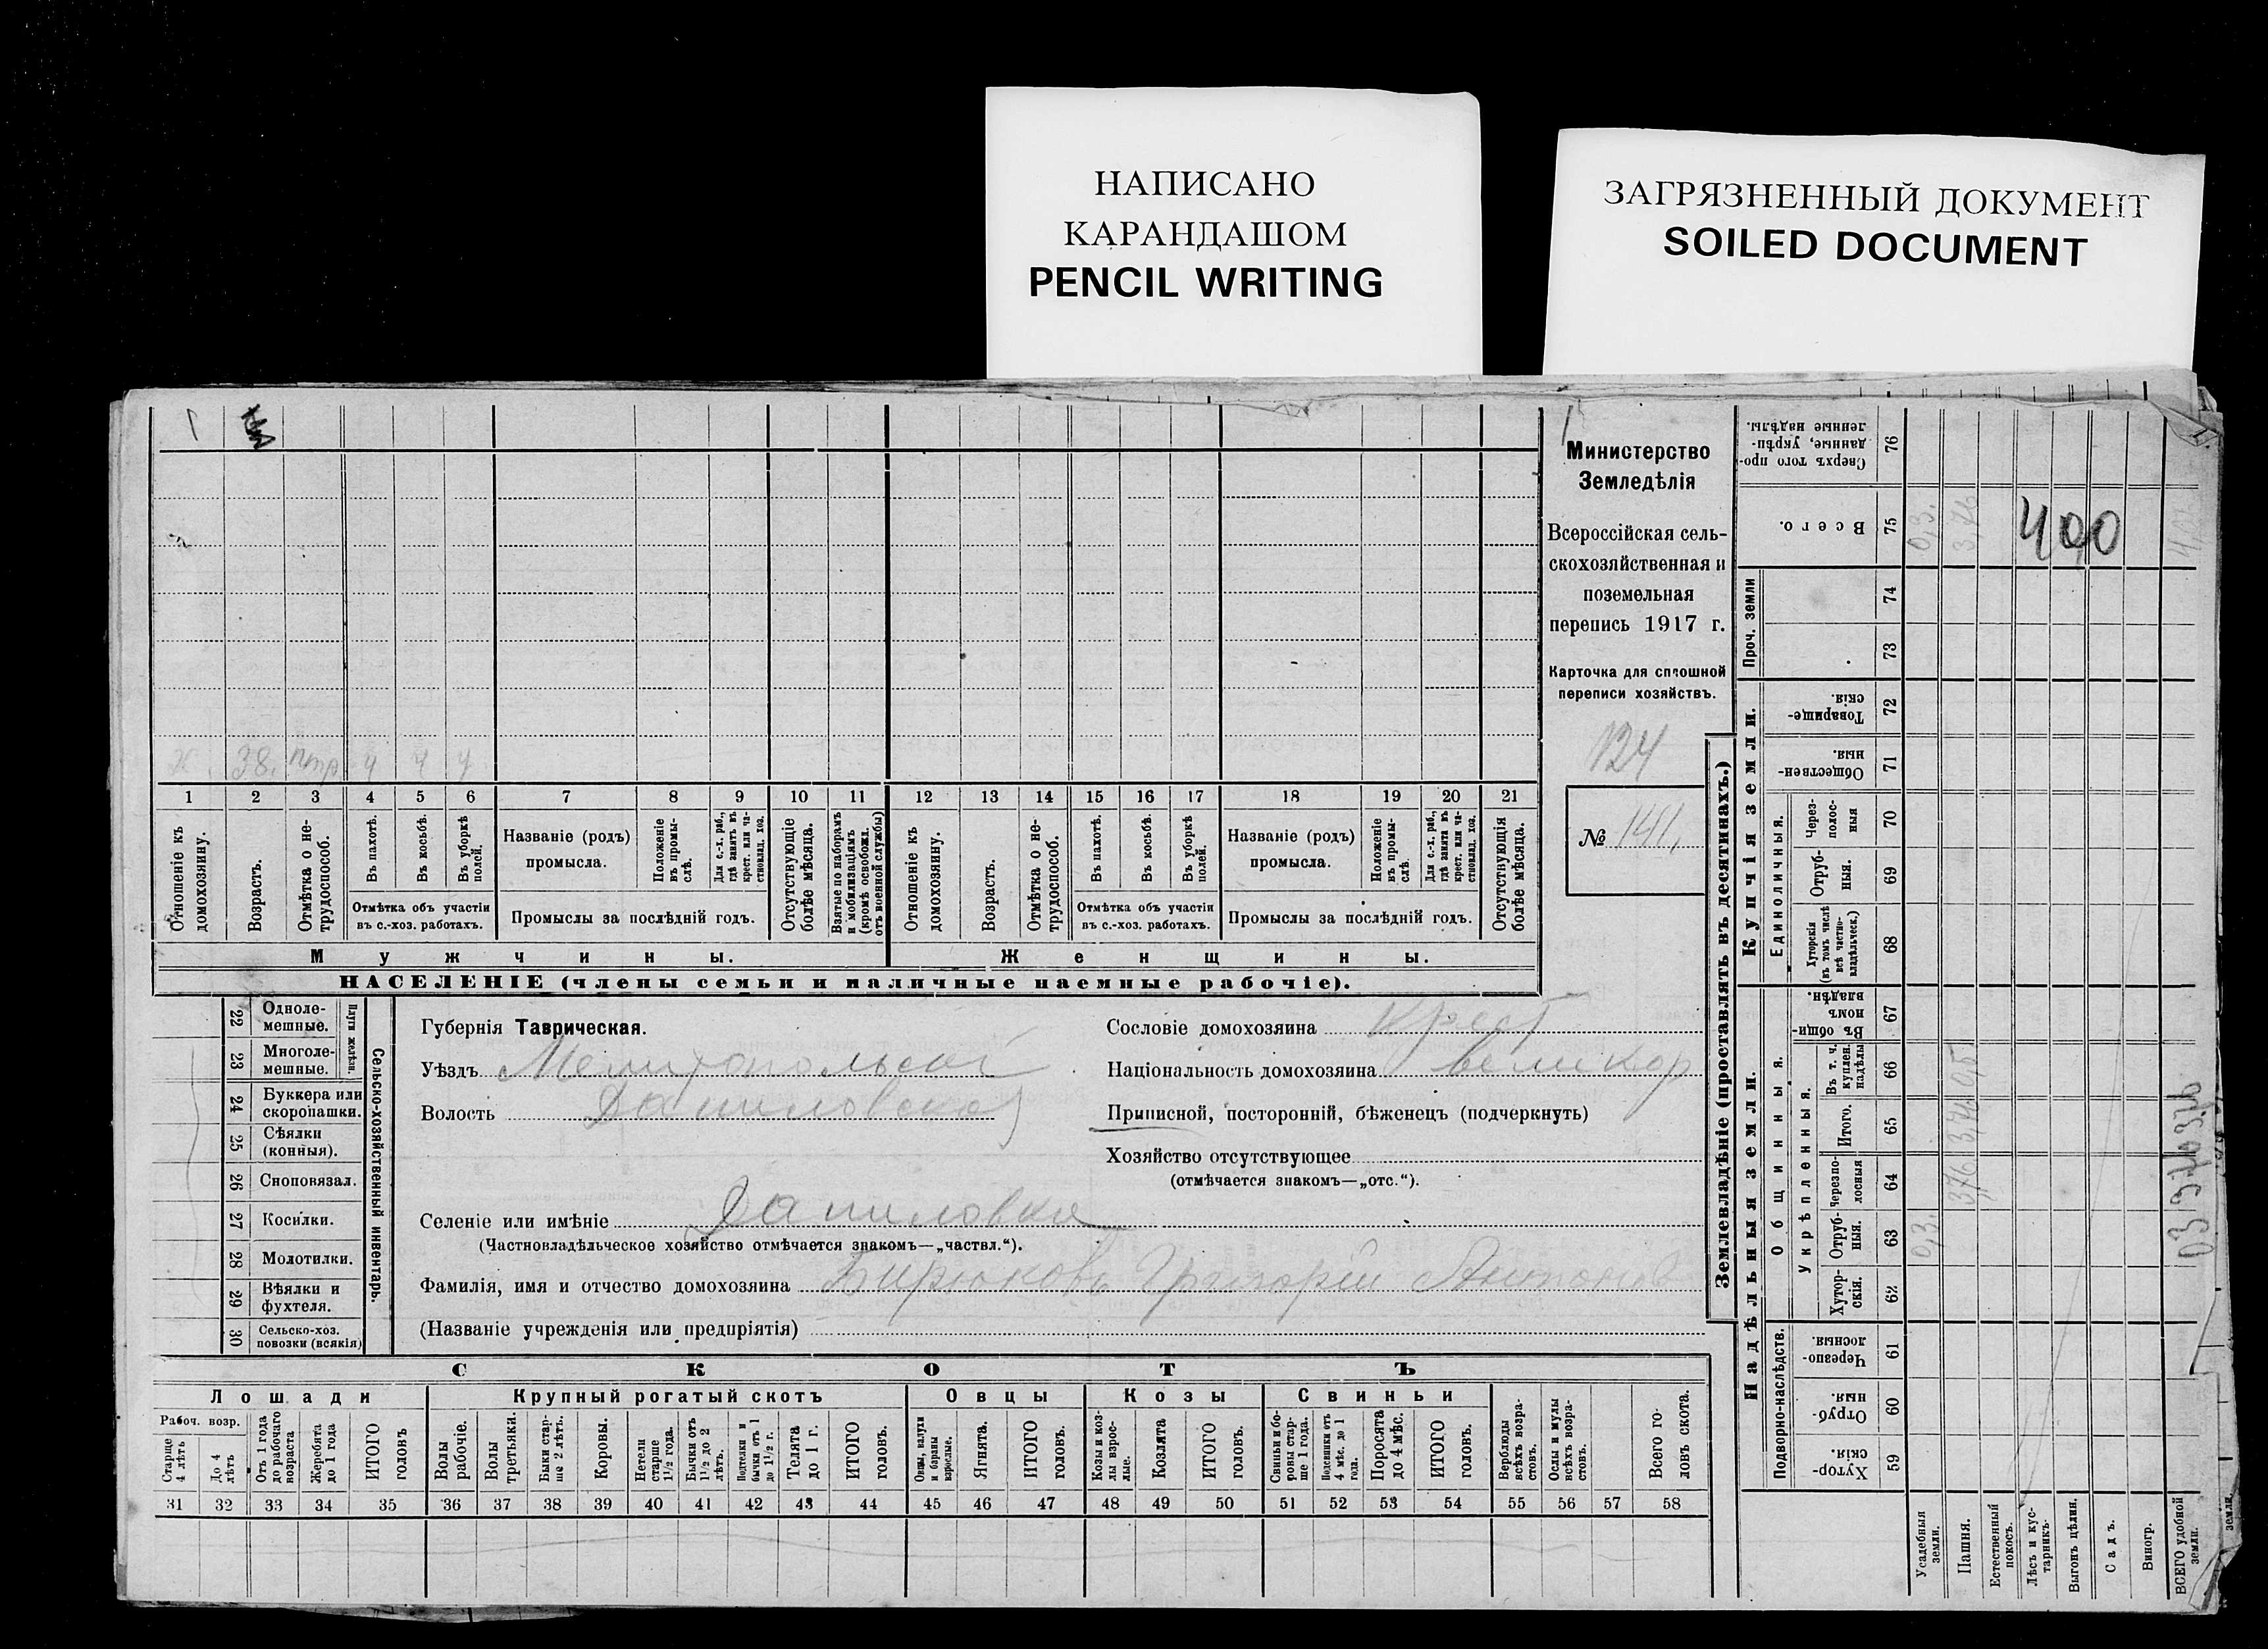 НАПИСАНО
КАРАНДАШОМ
PENCIL WRITING
ЗАГРЯЗНЕННЫЙ ДОКУМЕНТ
SOILED DOCUMENT
Министерство
Земледѣлія
Всероссійская сель-
скохозяйственная и
поземельная
перепись 1917 г.
Карточка для сплошной
переписи хозяйствъ.
124
№ 141
38
1 2 3 4 5 6 7 8 9 10 11 12 13 14 15 16 17 18 19 20 21
Отношеніе къ домохозяину.
Возрастъ.
Отмѣтка о не-трудоспособ.
Въ пахотѣ.
Въ косьбѣ.
Въ уборкѣ полей.
Отмѣтка объ участіи
въ с.-хоз. работахъ.
Названіе (родъ)
промысла.
Положеніе въ промы-слѣ.
Для с.-х. раб., гдѣ занятъ въ крест. или ча-стновлад. хоз.
Промыслы за послѣдній годъ.
Отсутствующіе болѣе мѣсяца.
Взятые по наборамъ и мобилизаціямъ (кромѣ освобожд. отъ военной службы)
Отношеніе къ домохозяину.
Возрастъ.
Отмѣтка о не-трудоспособ.
Въ пахотѣ.
Въ косьбѣ.
Въ уборкѣ полей.
Отмѣтка объ участіи
въ с.-хоз. работахъ.
Названіе (родъ)
промысла.
Положеніе въ промы-слѣ.
Для с.-х. раб., гдѣ занята въ крест. или ча-стновлад. хоз.
Промыслы за послѣдній годъ.
Отсутствующія болѣе мѣсяца.
Мужчины.
Женщины.
НАСЕЛЕНІЕ (члены семьи и наличные наемные рабочіе).
Сельско-хозяйственный инвентарь.
Плуги желѣзн.
22 Одноле-мешные.
23 Многоле-мешные.
24 Буккера или скоропашки.
25 Сѣялки (конныя).
26 Сноповязал.
27 Косилки.
28 Молотилки.
29 Вѣялки и фухтеля.
30 Сельско-хоз. повозки (всякія)
Губернія Таврическая.
Уѣздъ Мелитопольскій
Волость Даниловская
Сословіе домохозяина Крест
Національность домохозяина великор
Приписной, посторонній, бѣженецъ (подчеркнуть)
Хозяйство отсутствующее
(отмѣчается знакомъ—„отс.“).
Селеніе или имѣніе Даниловка
(Частновладѣльческое хозяйство отмѣчается знакомъ—„частвл.“).
Фамилія, имя и отчество домохозяина Бирюковъ Григорій Антонов
(Названіе учрежденія или предпріятія)
СКОТЪ
Лошади
Крупный рогатый скотъ
Овцы
Козы
Свиньи
Рабоч. возр.
Старше 4 лѣтъ
До 4 лѣтъ
Отъ 1 года до рабочаго возраста
Жеребята до 1 года
ИТОГО головъ
Волы рабочіе.
Волы третьяки.
Быки стар-ше 2 лѣтъ.
Коровы.
Нетели старше 1½ года.
Бычки отъ 1½ до 2 лѣтъ.
Подтелки и бычки отъ 1 до 1½ г.
Телята до 1 г.
ИТОГО головъ.
Овцы, валухи и бараны взрослые.
Ягнята.
ИТОГО головъ.
Козы и коз-лы взрос-лые.
Козлята
ИТОГО головъ.
Свиньи и бо-ровы стар-ше 1 года.
Подсвинки отъ 4 мѣс. до 1 года.
Поросята до 4 мѣс.
ИТОГО головъ.
Верблюды всѣхъ возра-стовъ.
Ослы и мулы всѣхъ возра-стовъ.
Всего го-ловъ скота.
31 32 33 34 35 36 37 38 39 40 41 42 43 44 45 46 47 48 49 50 51 52 53 54 55 56 57 58
Землевладѣніе (проставлять въ десятинахъ.)
Купчія земли.
Надѣльныя земли.
Сверхъ того про-данные, укрѣп-ленные надѣлы. 76
Всего. 75
0,3. 3,76 400
Проч. земли
74
73
Товарище-скія. 72
Обществен-ныя. 71
Единоличныя.
Через-полос-ныя 70
Отруб-ныя. 69
Хуторскія (въ томъ числѣ всѣ частно-владѣльческ.) 68
Общинныя.
Въ общи-номъ владѣн. 67
Укрѣпленныя.
Въ т. ч. куплен. надѣлы 66
Итого. 65
Черезпо-лосныя 64
3,76
Отруб-ныя. 63
0,3.
Хутор-скія. 62
Подворно-наслѣдств.
Черезпо-лосныя 61
Отруб-ныя. 60
Хутор-скія. 59
Усадебныя земли.
Пашня.
Естественный покосъ.
Лѣсъ и кус-тарникъ.
Выгонъ цѣлин.
Садъ.
Виногр.
ВСЕГО удобной земли.
земли.